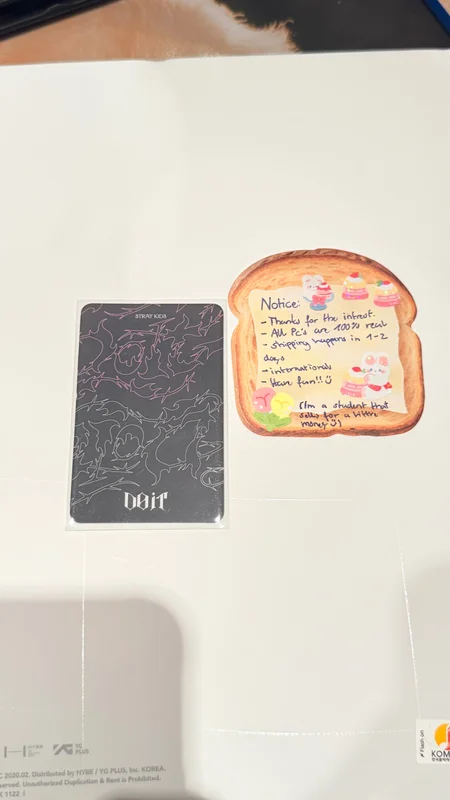 STRAY KIDS
DO iT
Notice:
- Thanks for the intrest.
- All Pc's are 100% real
- shipping happens in 1-2
days
- internationals
- Have fun!!
(I'm a student that
sells for a little
money :))
YG
PLUS
C 2020.02. Distributed by HYBE / YG PLUS, Inc. KOREA.
ed. Unauthorized Duplication & Rent is Prohibited.
K 1122
Flash on
KOM